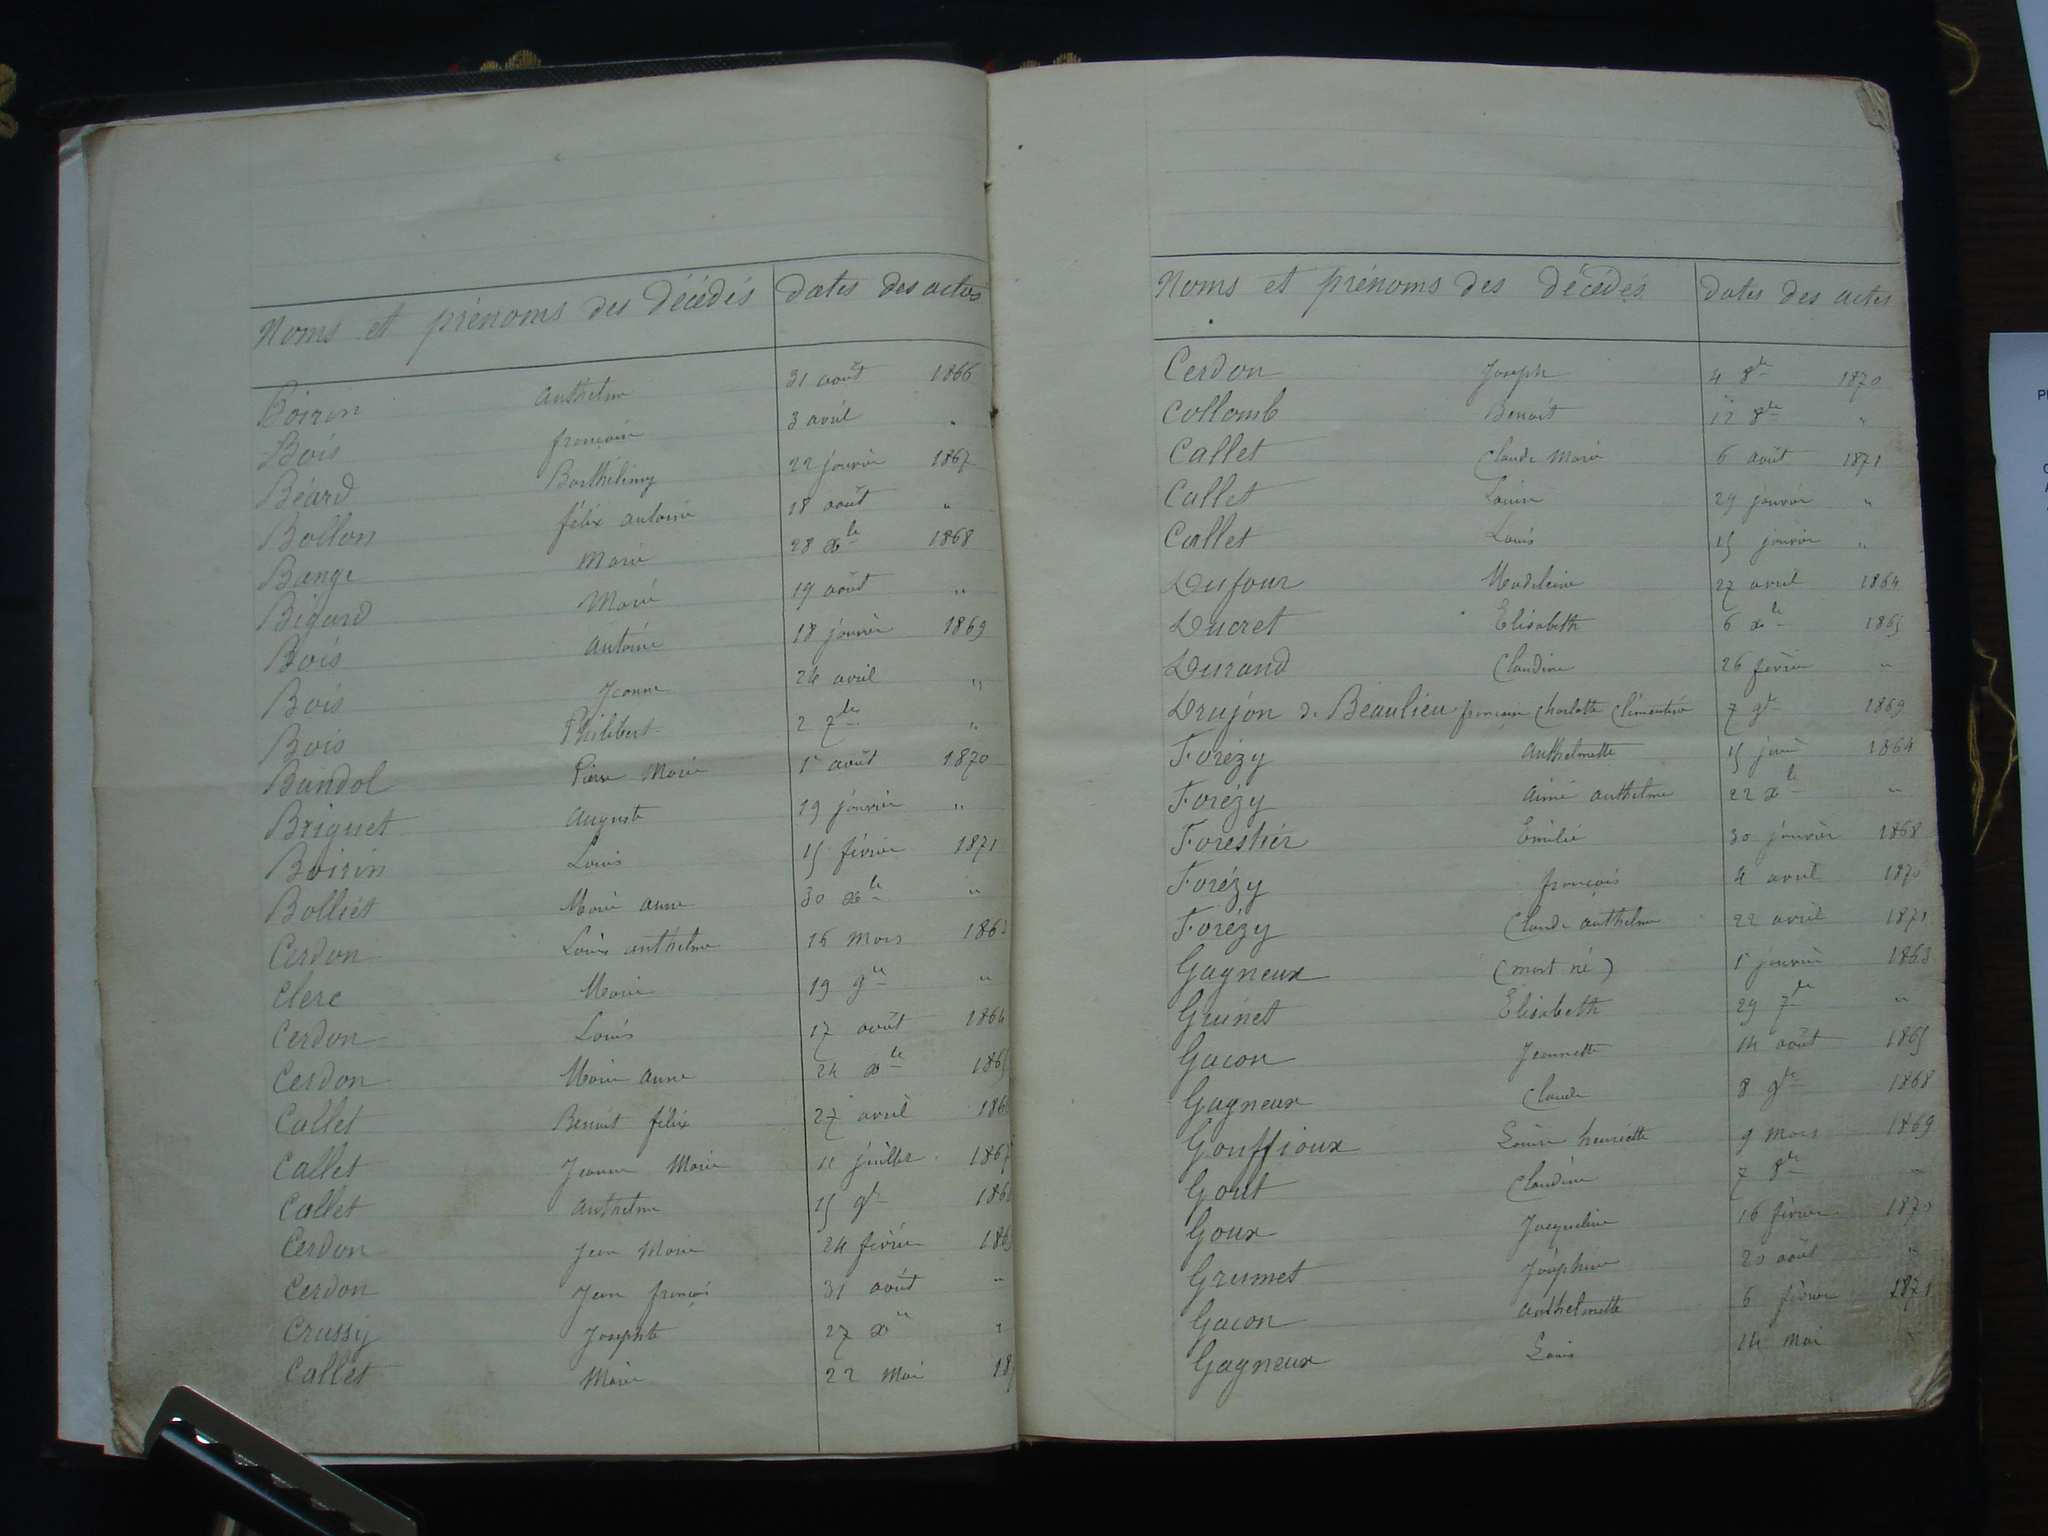 Noms et prénoms des décédés dates des actes
Boirin anthelme 31 août 1866
Bois françois 3 avril "
Béard Barthélimy 22 janvier 1867
Bollon félix antoine 18 août "
Bange Marie 28 xbre 1868
Bigard Marie 19 août "
Bois antoine 18 janvier 1869
Bois Jeanne 24 avril "
Bois Philibert 2 7bre "
Bandol Pierre Marie 1r août 1870
Briquet auguste 19 janvier "
Boirin Louis 15 février 1871
Bolliet Marie anne 30 xbre "
Cerdon Louis anthelme 16 mars 1863
Clerc Marie 19 9bre "
Cerdon Louis 17 août 1864
Cerdon Marie anne 24 xbre 1865
Callet Benoit félix 27 avril
Callet Jeanne Marie 11 juillet 1867
Callet anthelme 15 9bre
Cerdon Jean Marie 24 février
Cerdon Jean françois 31 août "
Crussy Josephte 27 xbre "
Callet Marie 22 Mai
Noms et prénoms des décédés dates des actes
Cerdon Joseph 4 8bre 1870
Collomb Benoit 12 8bre "
Callet Claude Marie 6 août 1871
Callet Louise 29 janvier "
Callet Louis 15 janvier "
Dufour Madeleine 27 avril 1864
Ducret Elisabeth 6 xbre 1865
Durand Claudine 26 février "
Drujon de Beaulieu françoise Charlotte Clémentine 7 9bre 1869
Forézy anthelmette 15 juin 1864
Forézy aimé anthelme 22 xbre "
Forestier Emilie 30 janvier 1868
Forézy françois 4 avril 1870
Forézy Claude anthelme 22 avril 1871
Gagneux (mort né) 1r janvier 1863
Guinet Elisabeth 29 7bre "
Gacon Jeannette 14 août 1865
Gagneux Claude 8 9bre 1868
Gouffioux Louise henriette 9 mars 1869
Gout Claudine 7 8bre "
Goux Jacqueline 16 février 1870
Grumet Joséphine 20 août "
Gacon anthelmette 6 février 1871
Gagneux Louis 14 mai "